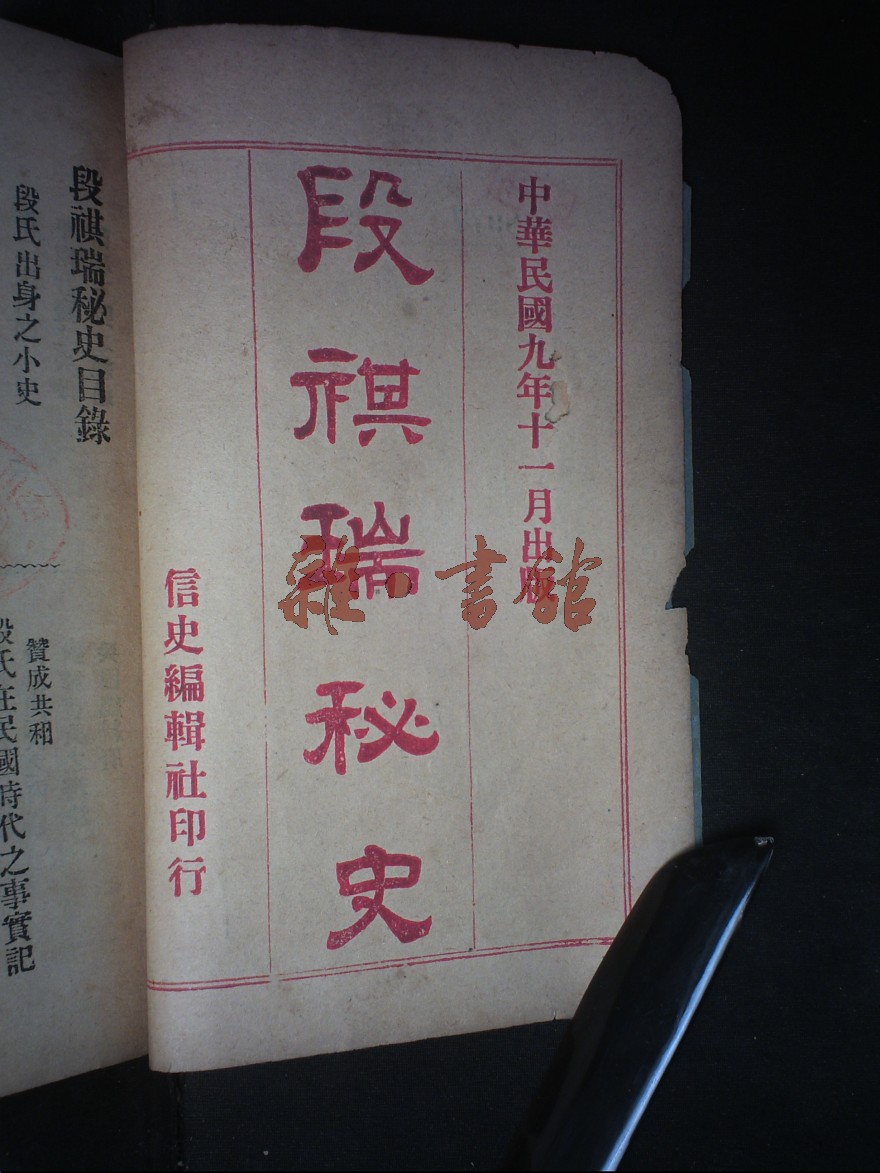 中華民國九年十一月出版
段祺瑞秘史
信史編輯社印行
段祺瑞秘史目錄
段氏出身之小史
贊成共和
段氏在民國時代之事實記
雜·書館